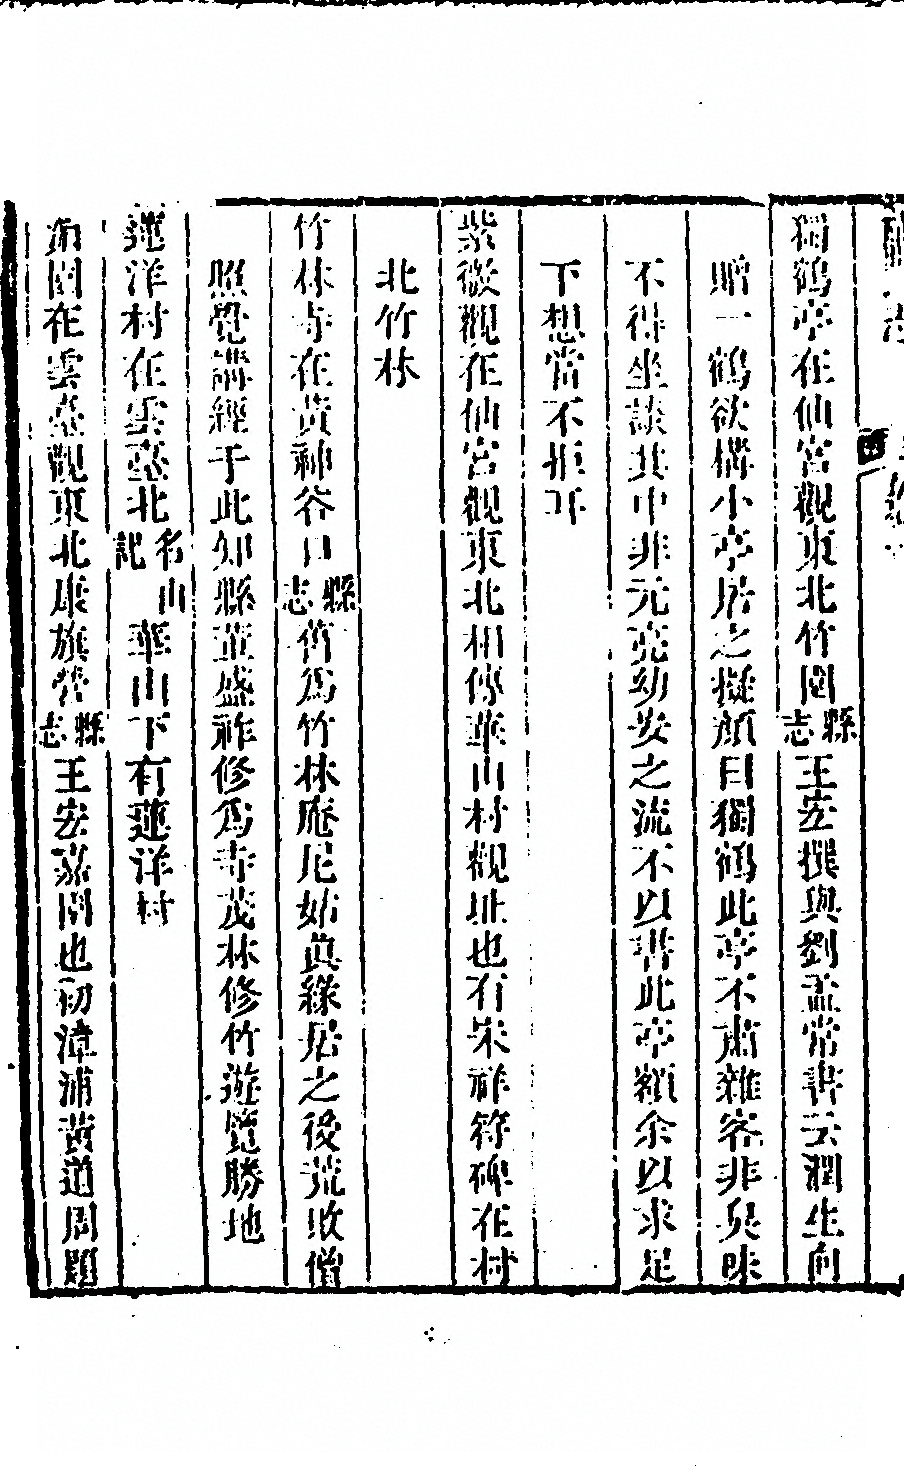 獨鶴亭在仙宮觀東北竹園縣志王宏撰與劉孟常書云潤生向
贈一鶴欲構小亭居之擬顏曰獨鶴此亭不肅雜客非臭味
不得坐談其中非元亮幼安之流不以書此亭額余以求足
下想當不拒耳
紫微觀在仙宮觀東北相傳華山村觀址也有宋祥符碑在村
北竹林
竹林寺在黃神谷口縣志舊為竹林庵尼姑真緣居之後荒敗僧
照覺講經于此知縣董盛祚修為寺茂林修竹遊覽勝地
蓮洋村在雲臺北名山記華山下有蓮洋村
園在雲臺觀東北康旗營縣志王宏嘉園也初漳浦黃道周題